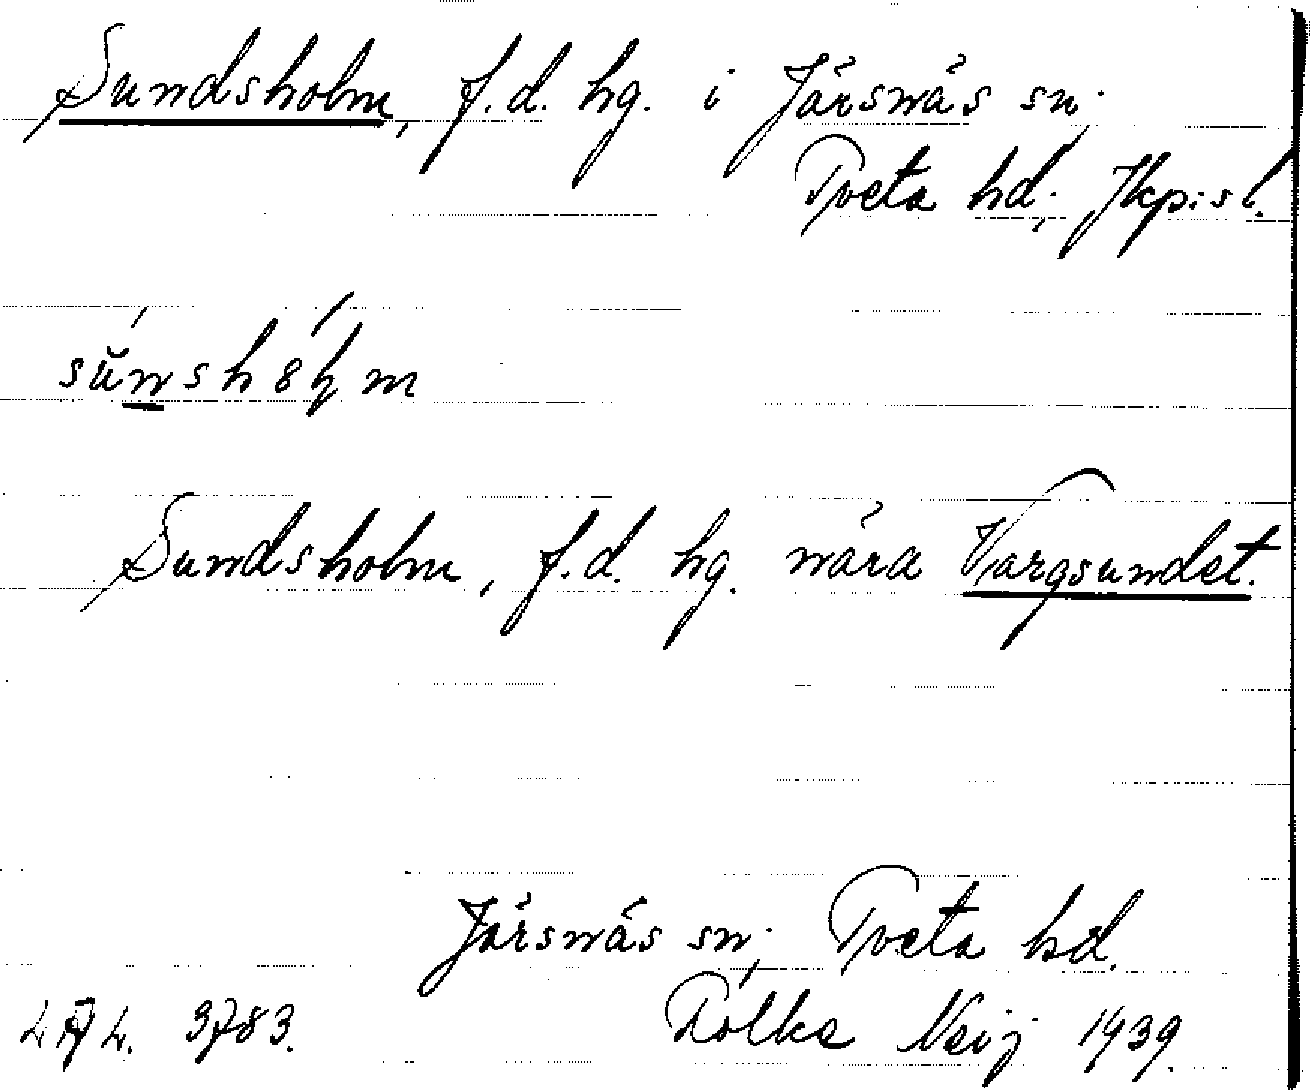 Sundsholm, f.d. hg. i Järsnäs sn.
Tveta hd., Jkp:s l.
Sundsholm, f.d. hg. nära Vargsundet.
Järsnäs sn., Tveta hd.
3783. Folke Neij 1939.